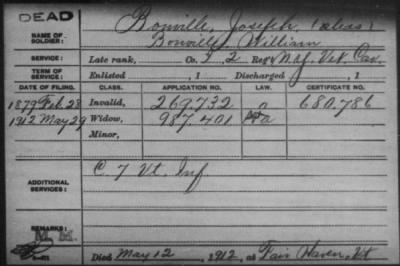 DEAD
NAME OF SOLDIER: Bonville, Joseph, (alias)
Bonville, William
SERVICE: Late rank, Co. I, 2 Reg't N.Y. Vet. Cav.
TERM OF SERVICE: Enlisted , 1 Discharged , 1
DATE OF FILING. CLASS. APPLICATION NO. LAW. CERTIFICATE NO.
1879 Feb. 28 Invalid, 269,732 680,786
1912 May 29 Widow, 987,401
Minor,
ADDITIONAL SERVICES: C. 7 Vt. Inf.
REMARKS:
Died May 12, 1912, at Fair Haven, Vt